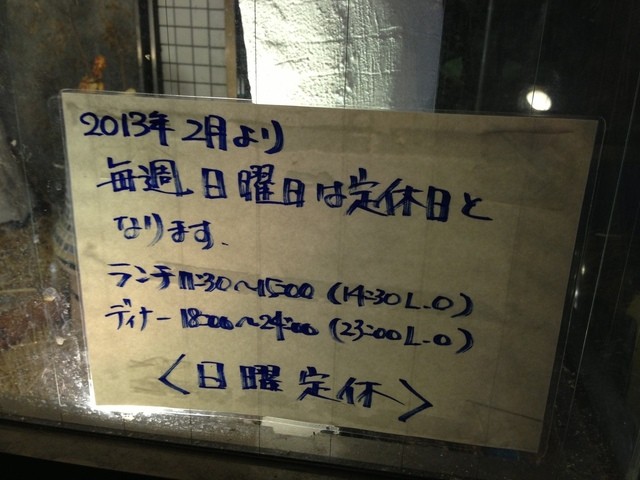 2013年 2月より
毎週 日曜日は定休日と
なります.
ランチ 11:30〜15:00 (14:30 L.O)
ディナー 18:00〜24:00 (23:00 L.O)
〈日曜定休〉